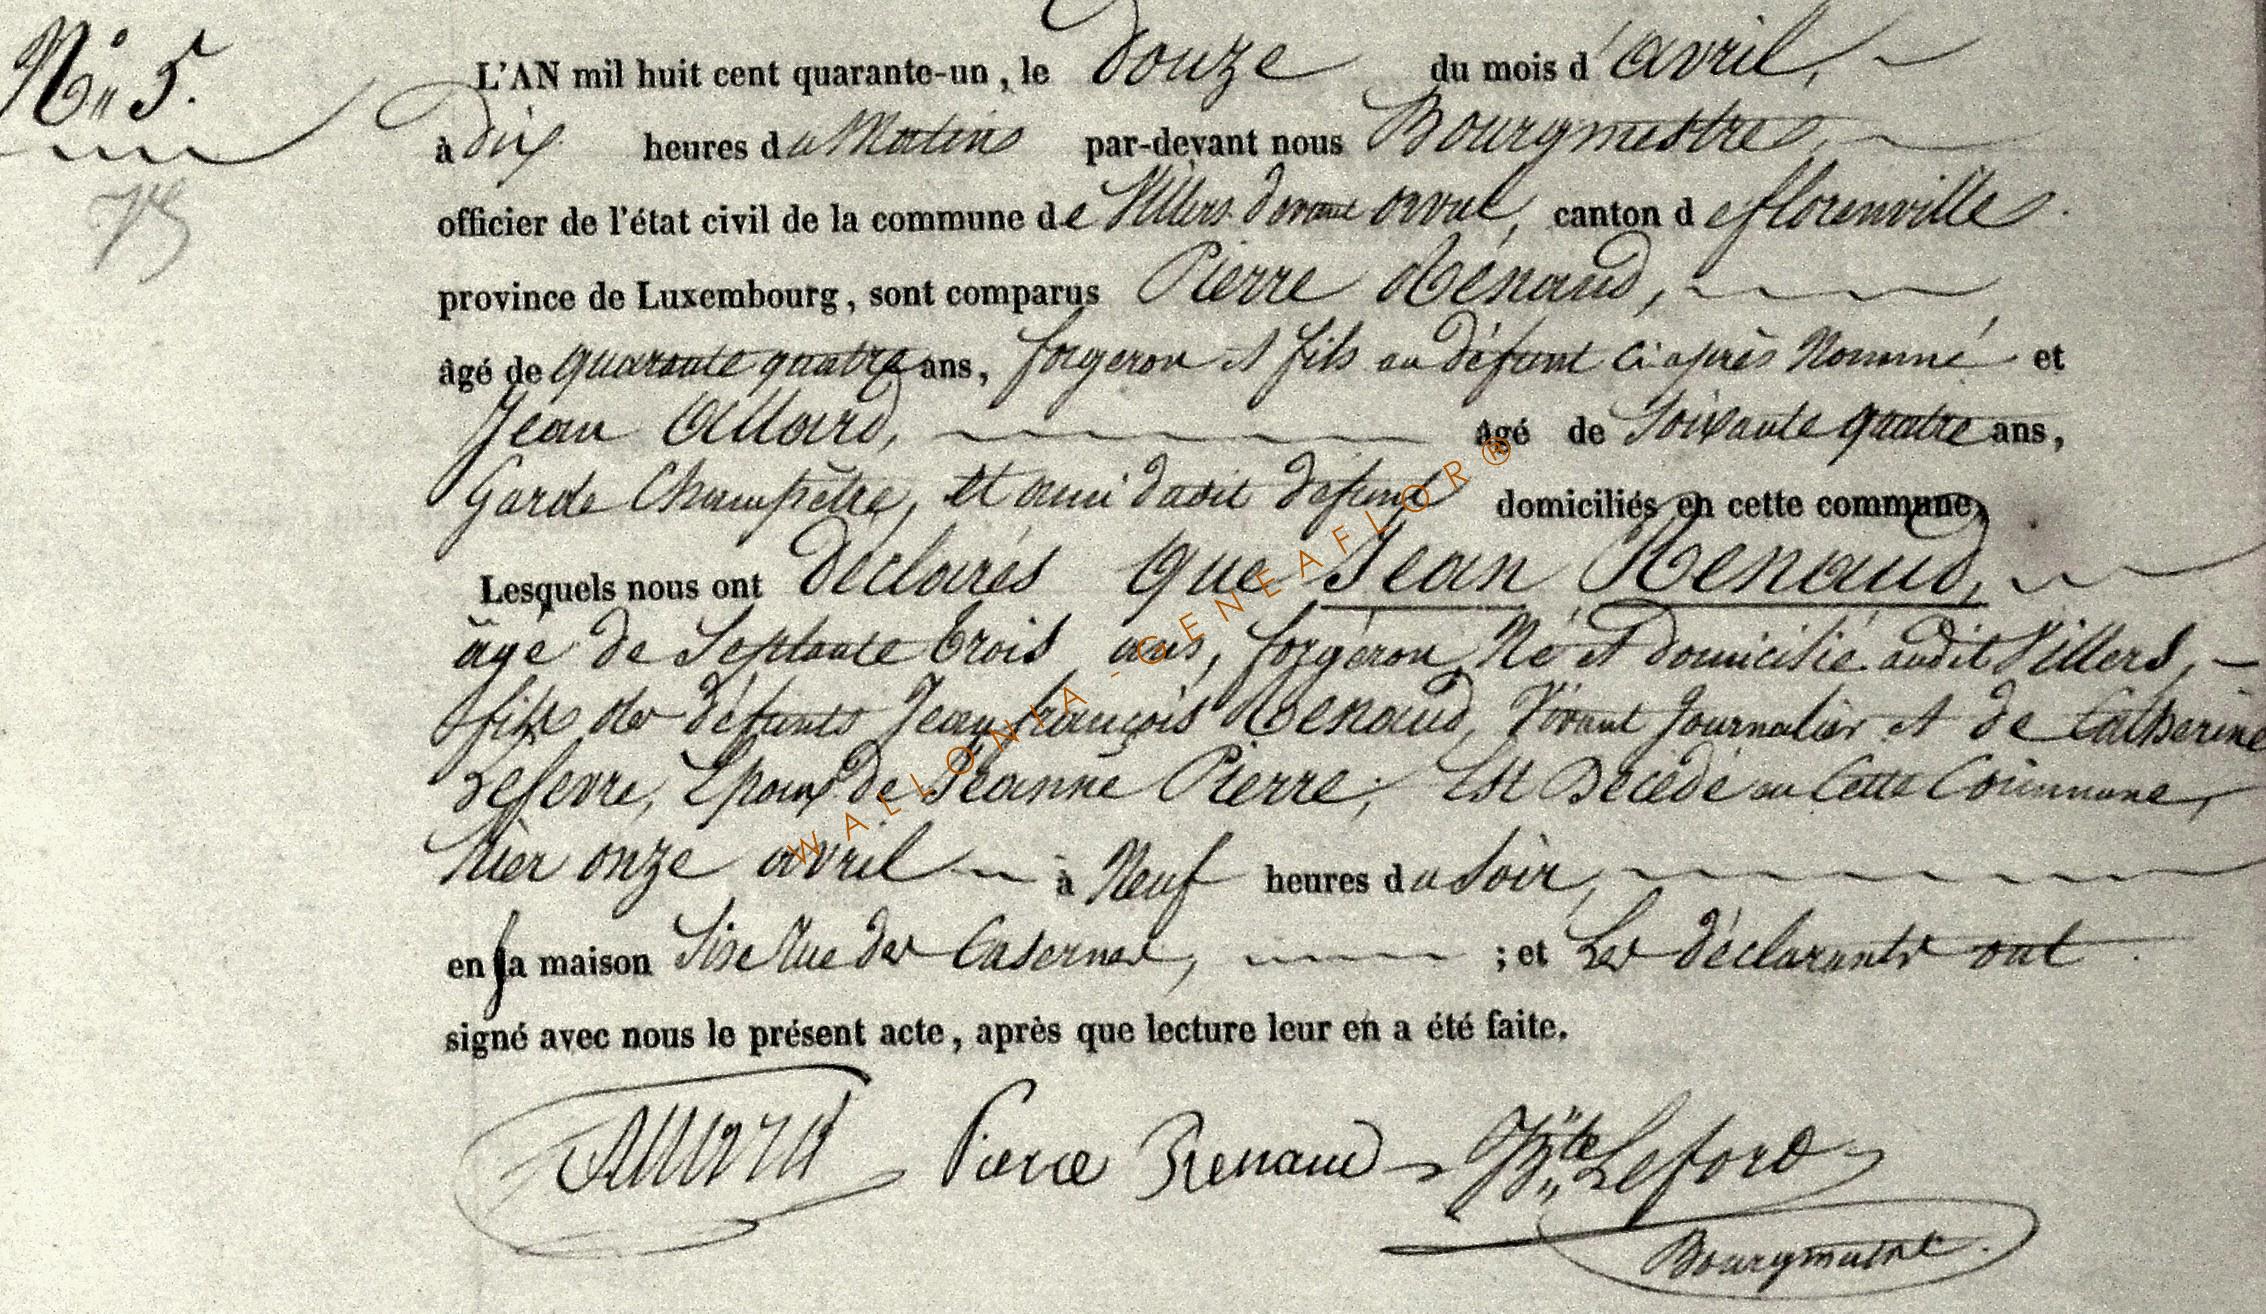 N° 5.
73
L'AN mil huit cent quarante-un, le Douze du mois d'avril,
à dix heures du Matin par-devant nous Bourgmestre
officier de l'état civil de la commune de Villers devant orval, canton de florenville
province de Luxembourg, sont comparus Pierre Rénaud,
âgé de quarante quatre ans, forgeron et fils au défunt ci après Nommé et
Jean Allard, âgé de Soixante quatre ans,
Garde Champêtre, et ami dudit défunt domiciliés en cette commune,
Lesquels nous ont déclarés que Jean Renaud,
âgé de Septante trois ans, forgeron, Né et domicilié audit Villers,
fils des défunts Jean françois Renaud, Vivant Journalier et de Catherine
Lefevre, Epoux de Jeanne Pierre, Est Décédé en Cette Commune,
hier onze avril à Neuf heures du Soir,
en sa maison Sise Rue des Casernes, ; et Les déclarants ont
signé avec nous le présent acte, après que lecture leur en a été faite.
Allard Pierre Renaud JBte Leford
Bourgmestre
WALLONIA - GENEAFLOR®